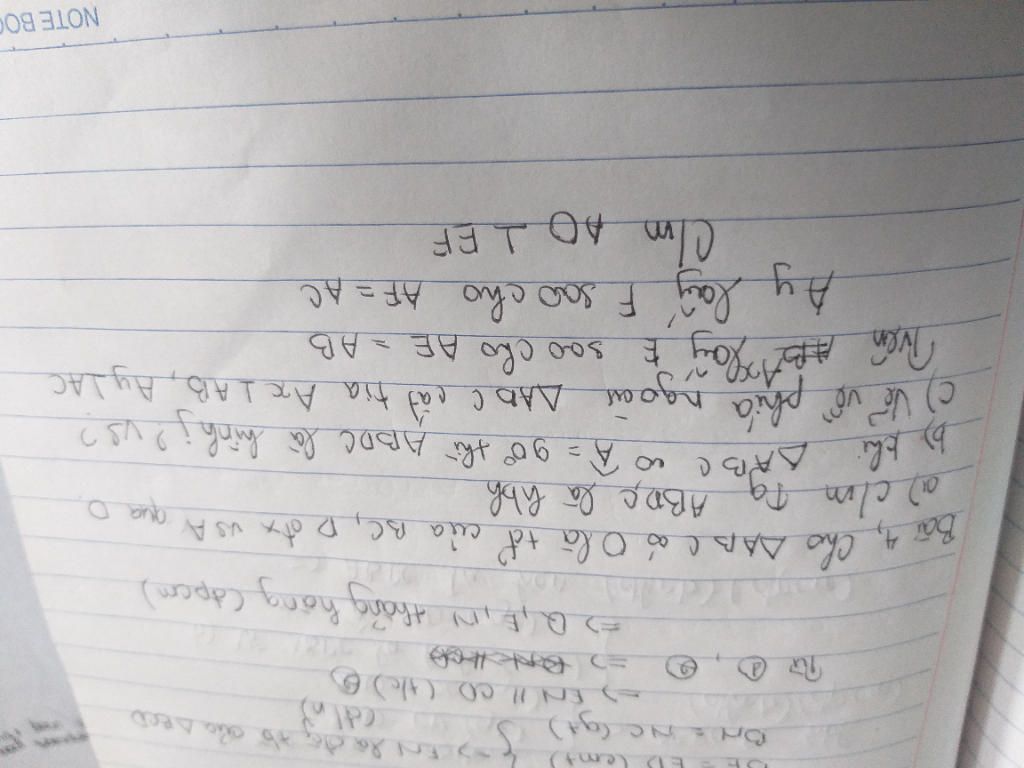 BE = ED (cmt) } => EN là đg tb của ΔBCD
BN = NC (gt) (đ/n)
=> EN // CD (t/c) ②
Từ ①, ② =>
=> Q, E, N thẳng hàng (đpcm)
Bài 4, Cho ΔABC có O là tđ của BC, D đx vs A qua O
a) c/m Tg ABDC là hbh
b) khi ΔABC có Â = 90° thì ABDC là hình j? vs?
c) Vẽ về phía ngoài ΔABC các tia Ax ⊥ AB, Ay ⊥ AC
Trên Ax lấy E sao cho AE = AB
Ay lấy F sao cho AF = AC
C/m AO ⊥ EF
NOTE BOO